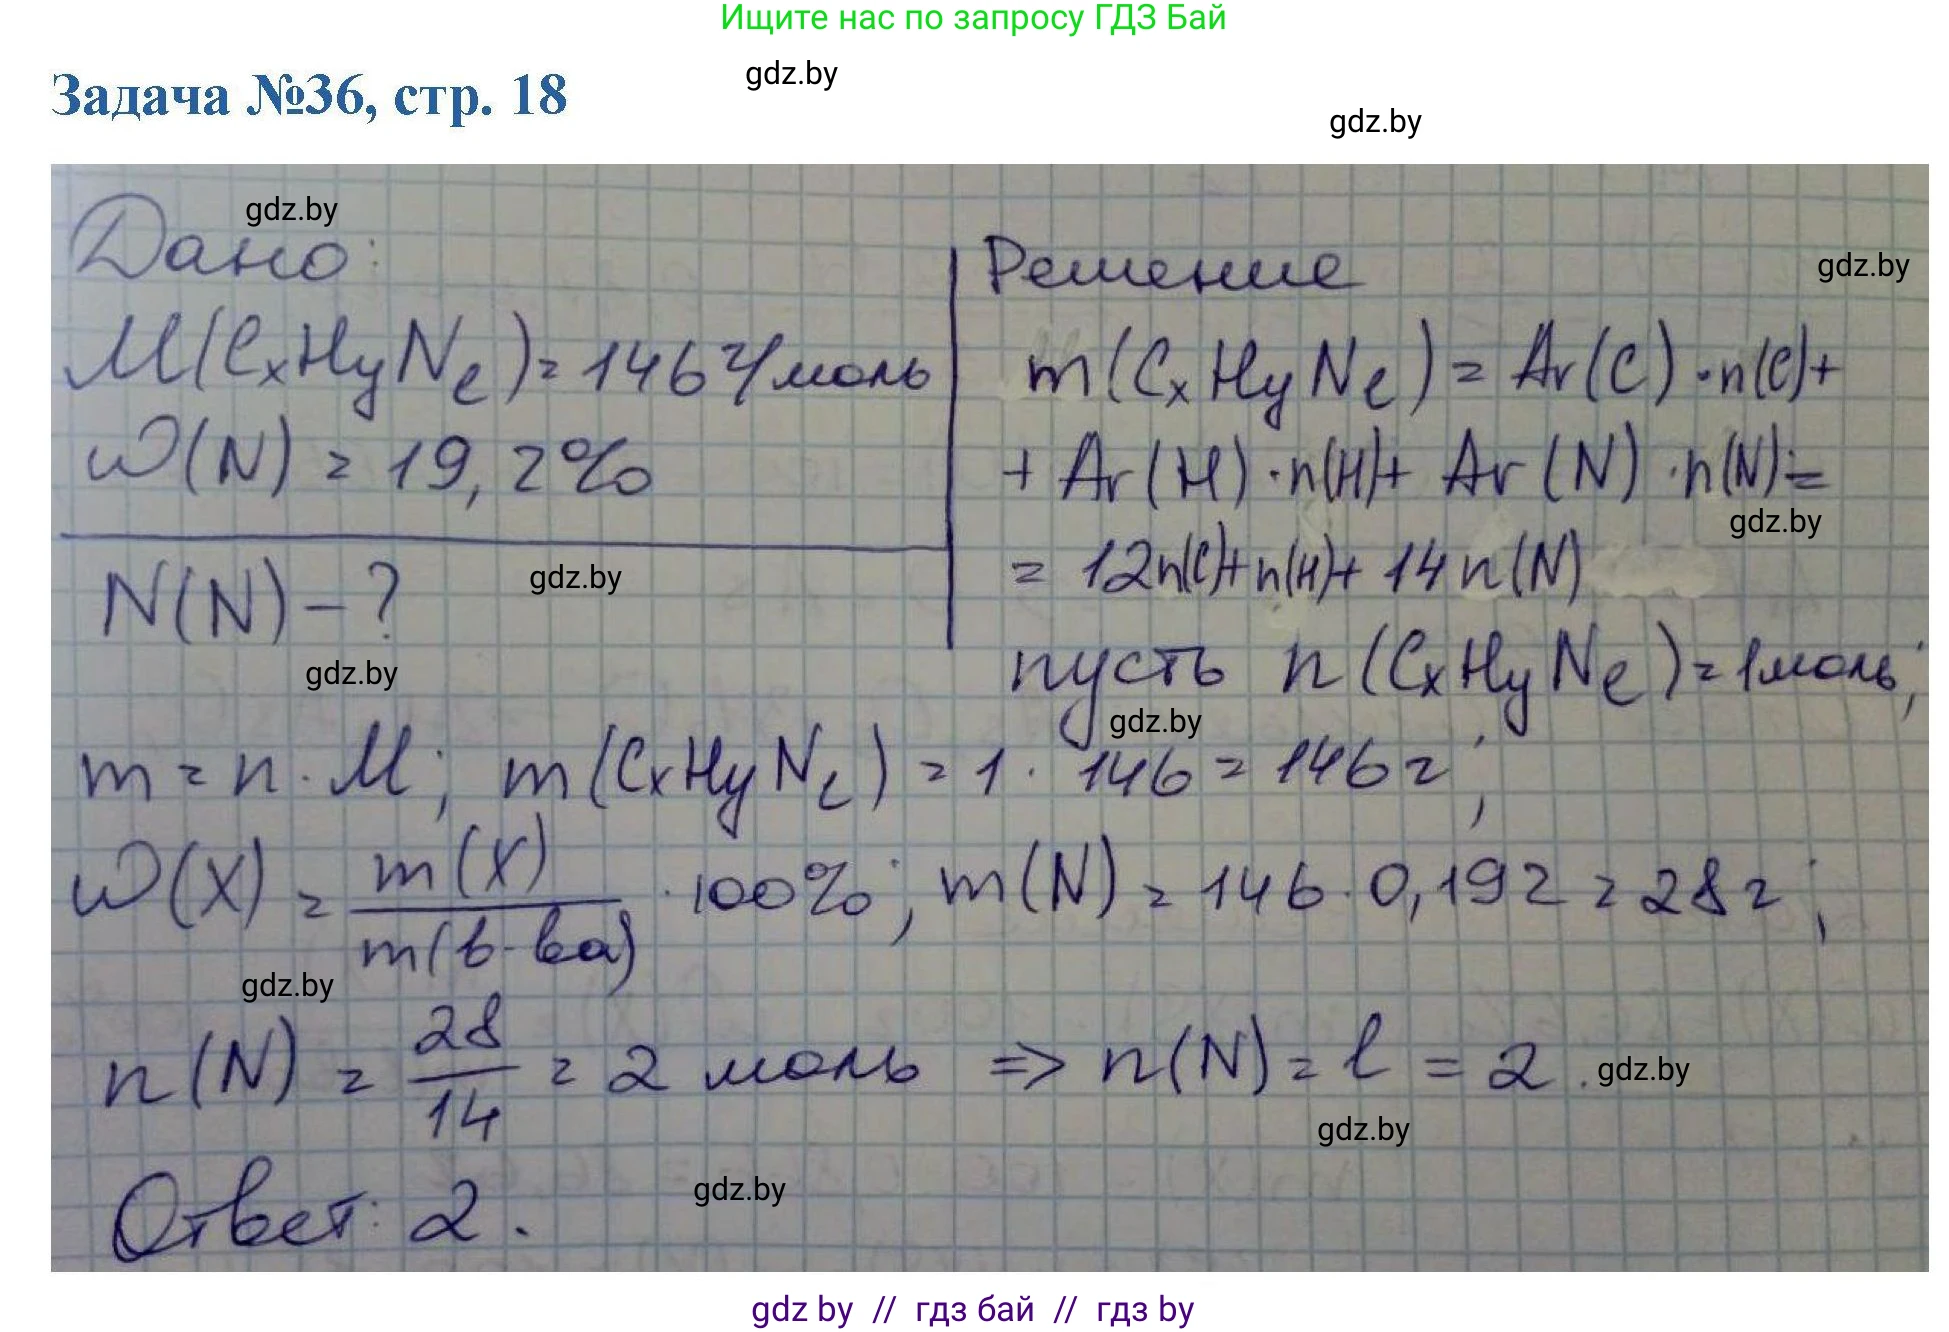 Ищите нас по запросу ГДЗ Бай
Задача №36, стр. 18
gdz.by
gdz.by
gdz.by
Дано:
M(CxHyNe) = 146 г/моль
ω(N) = 19,2%
N(N) - ?
gdz.by
gdz.by
Решение
gdz.by
m(CxHyNe) = Ar(C) · n(C) +
+ Ar(H) · n(H) + Ar(N) · n(N) =
gdz.by
= 12n(C) + n(H) + 14 n(N)
пусть n(CxHyNe) = 1 моль;
gdz.by
m = n · M; m(CxHyNe) = 1 · 146 = 146 г;
ω(X) = m(X) / m(в-ва) · 100%; m(N) = 146 · 0,192 = 28 г;
gdz.by
n(N) = 28 / 14 = 2 моль => n(N) = l = 2.
gdz.by
gdz.by
Ответ: 2.
gdz.by
gdz by // гдз бай // гдз by